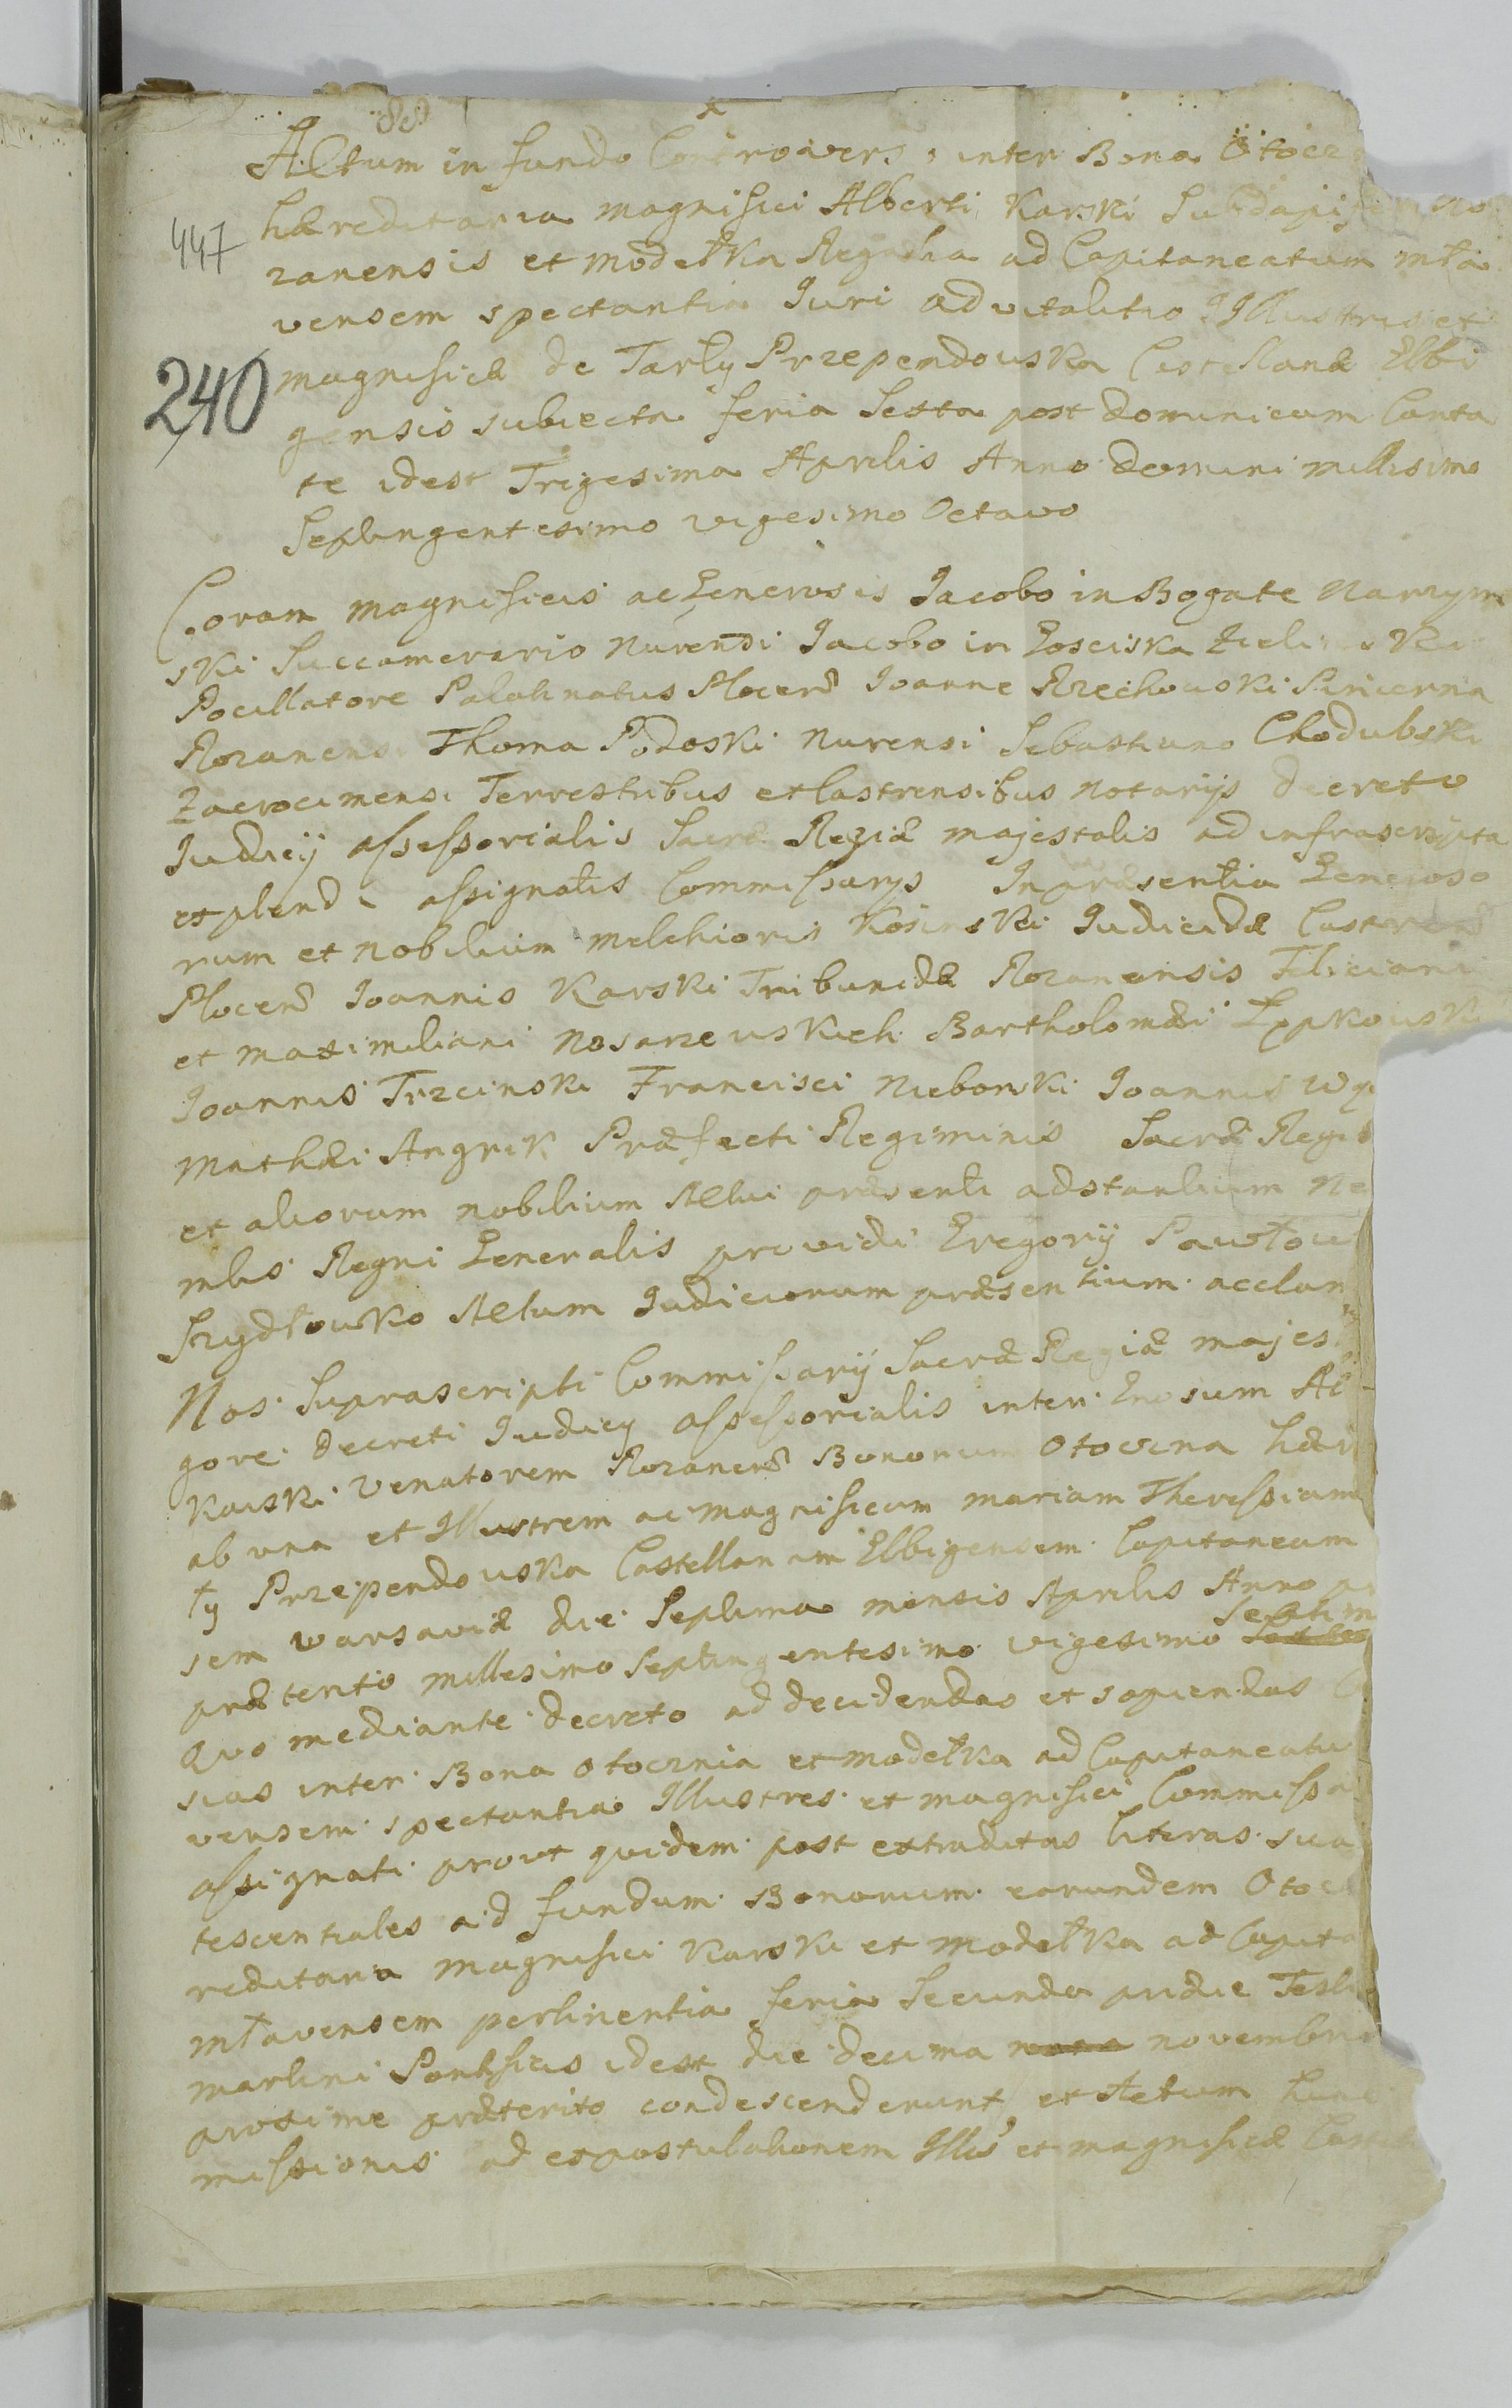 88
Actum in fundo Controvers: inter Bona Otocz
447
hæreditaria magnifici Alberti Karski Subdapiferi Ro
zanensis et modełka Regalia ad Capitaneatum mła
vensem spectantia Juri advitalitio Illustris et
240
magnificæ de Tarły Przependouska Castellanæ Elbi
gensis subiecta feria Sexta post dominicam Canta
te idest Trigesima Aprilis Anno domini millesimo
Septingentesimo vigesimo Octavo
Coram magnificis ac Generosis Jacobo in Bogate Narzym
ski Succamerario Nurensi Jacobo in Łosciska Zieli ski
Pocillatore Palatinatus Plocens Joanne Rzechouski Pincerna
Rozanensi Thoma Podoski Nurensi Sebastiano Chodubski
Zacrocimensi Terrestribus et Castrensibus Notarijs decreto
Judicij assessorialis Sacræ Regiæ majestatis ad infrascripta
explend assignatis Commissarijs In præsentia Generoso
rum et Nobilium Melchioris Kosinski Judicidæ Castrens
Plocens Joannis Karski Tribunidæ Rozanensis Feliciani
et maximiliani Nosarzeuskich Bartholomæi Lępkouski
Joannis Trzcinski Francisci Nieborski Joannis
Mathæi Angrik Præfecti Regiminis Sacræ Regiæ
et aliorum nobilium Actui præsenti adstantium
Regni Generalis providi Gregorij Pawłou
Szydłousko Actum Judiciorum præsentium acclam
Nos Suprascripti Commissarij Sacræ Regiæ majest
gore decreti Judicij assessorialis inter Gnosum Al
Karski Venatorem Rozanens Bonorum Otoczna hær
ab una et Illustrem ac magnificam mariam Theressiam
ły Przependouska Castellanam Elbigensem Capitaneam
sem Warsaviæ die Septima mensis Aprilis Anno
Septim
præterito millesimo Septingentesimo vigesimo
Quo mediante decreto ad decidendas et sopiendas
sias inter Bona Otocznia et modełka ad Capitaneatu
vensem spectantia Illustres et magnifici Commissa
assignati prout quidem post extraditas literas sua
tescentiales ad fundum Bonorum earundem Otocz
reditaria magnifici Karski et modełka ad Capita
młavensem pertinentia feria Secunda pridie Festi
martini Pontificis idest die decima novembris
proxime præterito condescenderunt et Actum hunc
missionis ad expostulationem Illis et magnificæ Cast